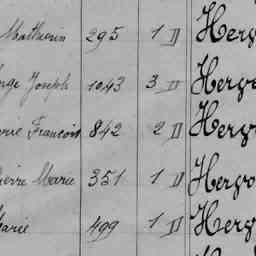 Mathurin 295 1 II Herv
Ange Joseph 1043 3 II Herv
Marie Francois 842 2 II Herv
Pierre Marie 351 1 II Hervo
Marie 499 1 II Herv